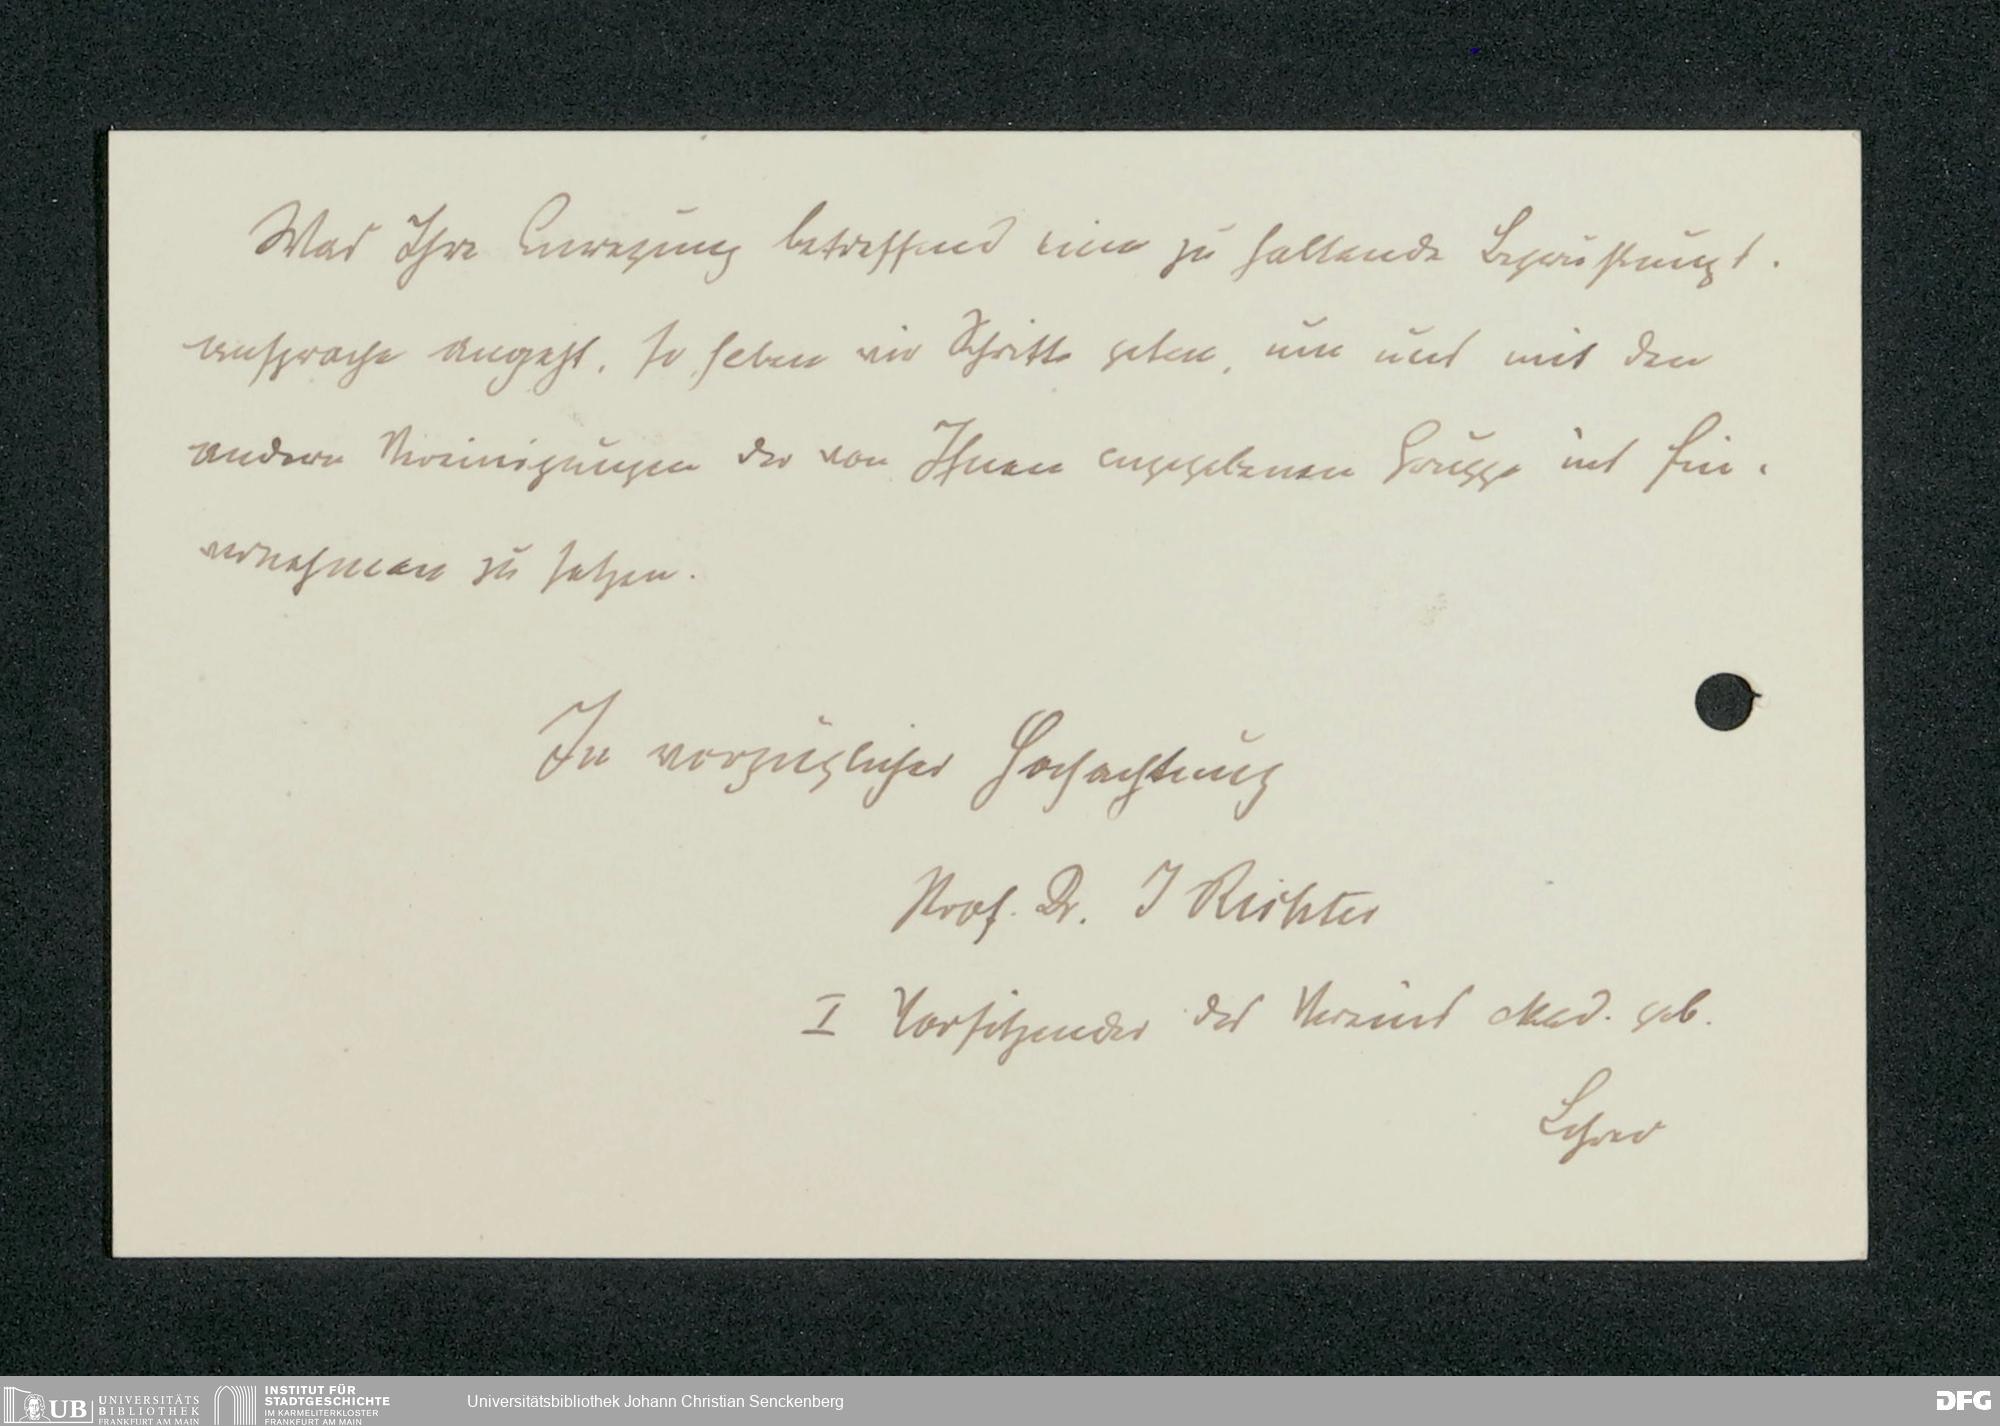 Was Ihre Anregung betreffend eine zu haltende Begrüßungs-
ansprache angeht, so haben wir Schritte getan, um uns mit den
andern Vereinigungen der von Ihnen angegebenen Gruppe ins Ein-
vernehmen zu setzen.
In vorzüglicher Hochachtung
Prof. Dr. J Richter
I Vorsitzender des Vereins akad. geb.
Lehrer
UB UNIVERSITÄTS
BIBLIOTHEK
FRANKFURT AM MAIN
INSTITUT FÜR
STADTGESCHICHTE
IM KARMELITERKLOSTER
FRANKFURT AM MAIN
Universitätsbibliothek Johann Christian Senckenberg
DFG